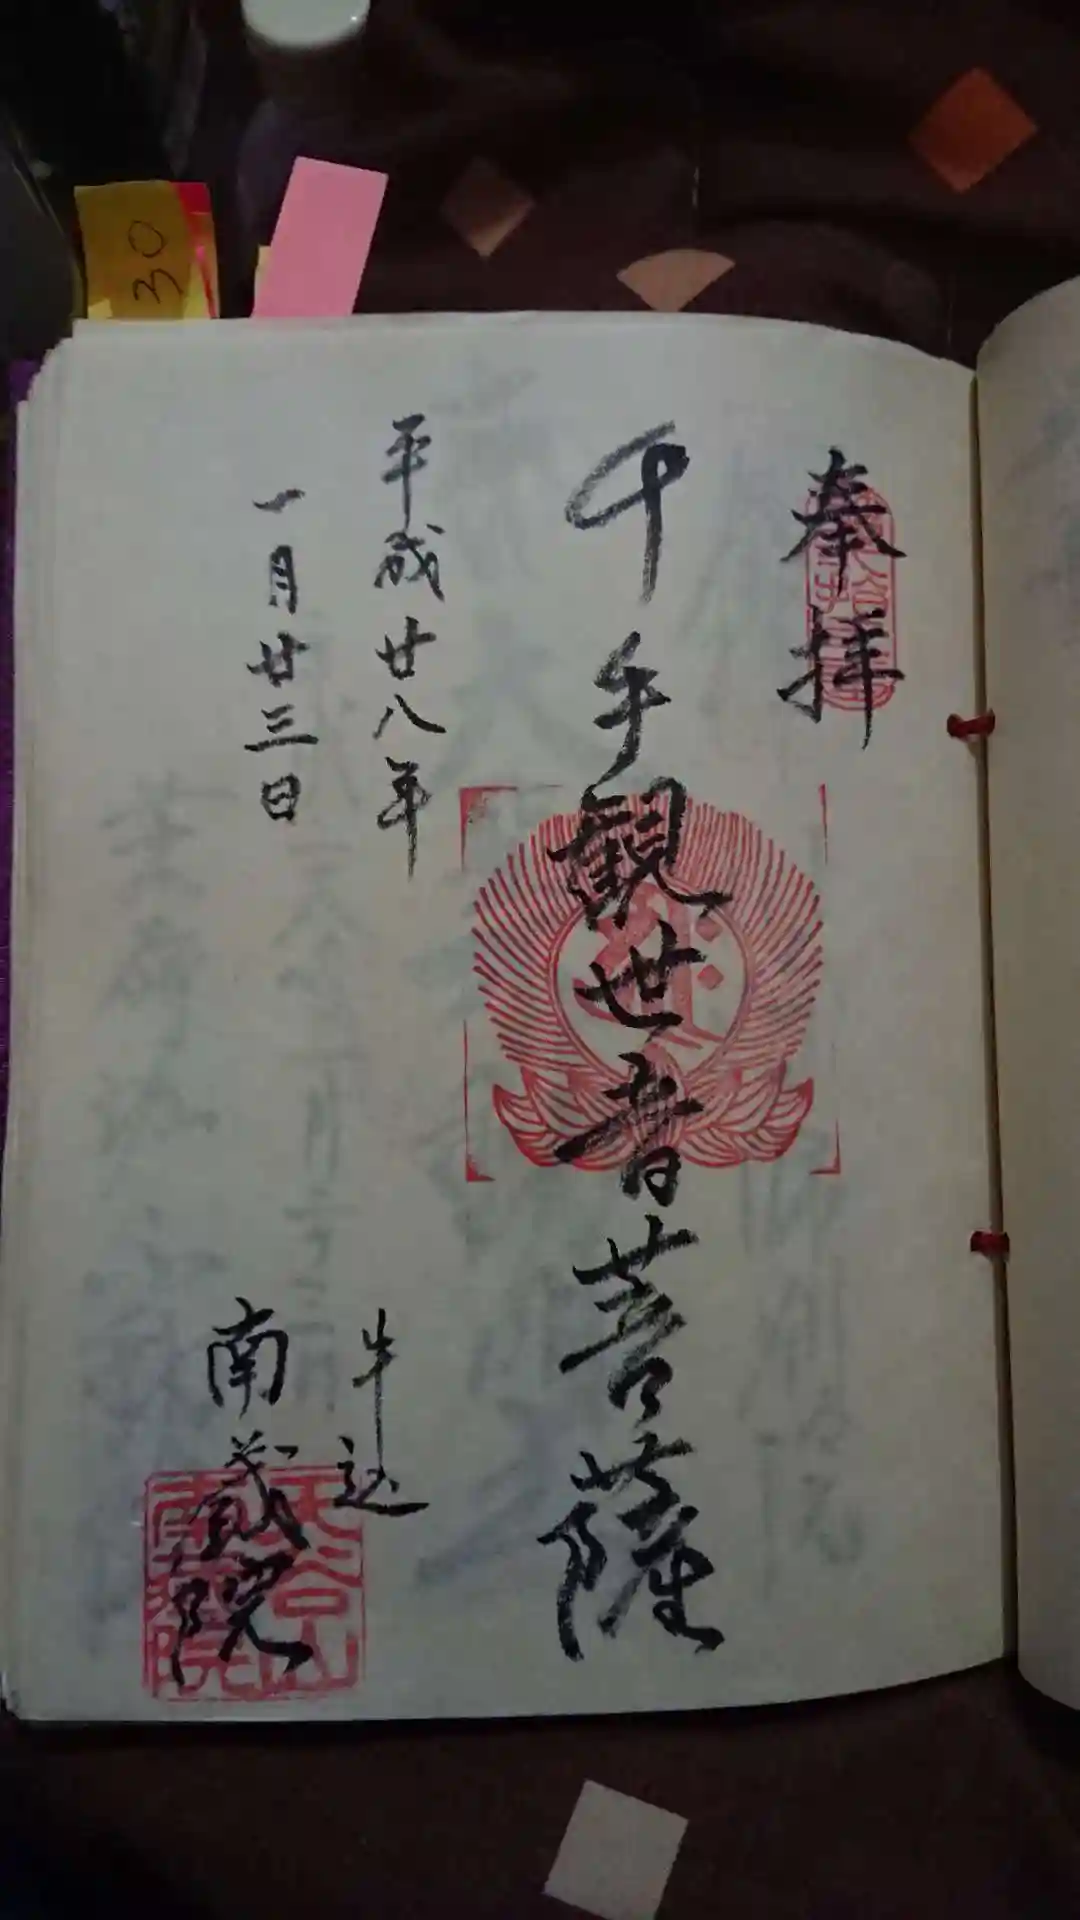 奉拝
千手観世音菩薩
平成廿八年
一月廿三日
牛込
南蔵院
30